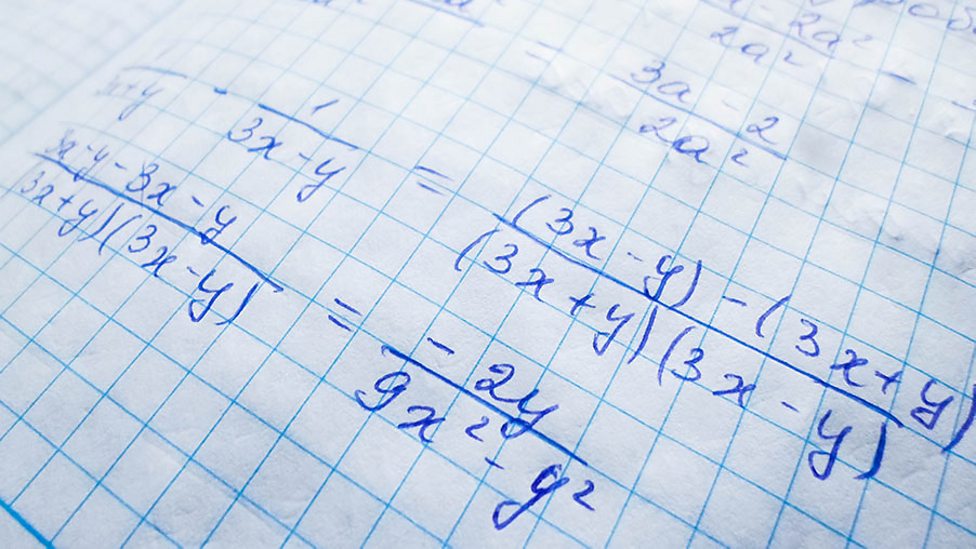 - 2a² / 2a² -
= 3a - 2 / 2a²
/ 3x+y - 1 / 3x-y = (3x-y) - (3x+y) / (3x+y)(3x-y)
3x-y-3x-y / (3x+y)(3x-y) = -2y / 9x²-y²